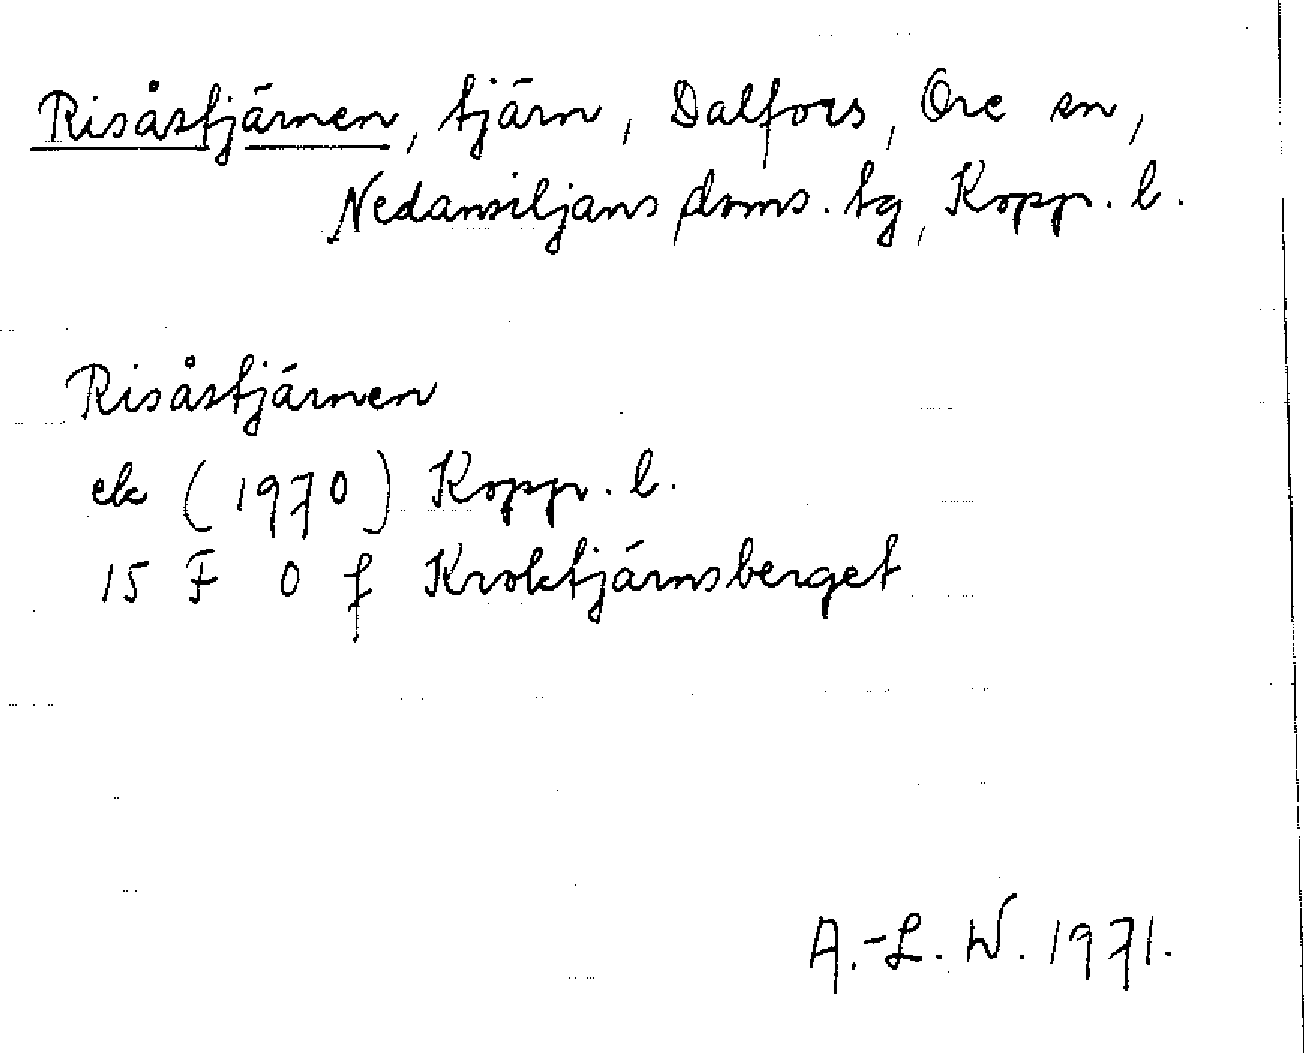 Risåstjärnen, tjärn, Dalfors, Ore sn,
Nedansiljans doms. tg, Kopp. l.
Risåstjärnen
ek (1970) Koppr. l.
15 F 0 f Kroktjärnsberget
A.-L. W. 1971.